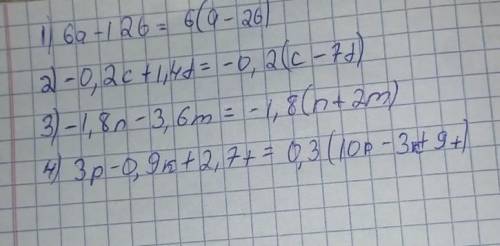 1) 6a-12b = 6(a-2b)
2) -0,2c+1,4d = -0,2(c-7d)
3) -1,8n-3,6m = -1,8(n+2m)
4) 3p-0,9k+2,7t = 0,3(10p-3k+9t)